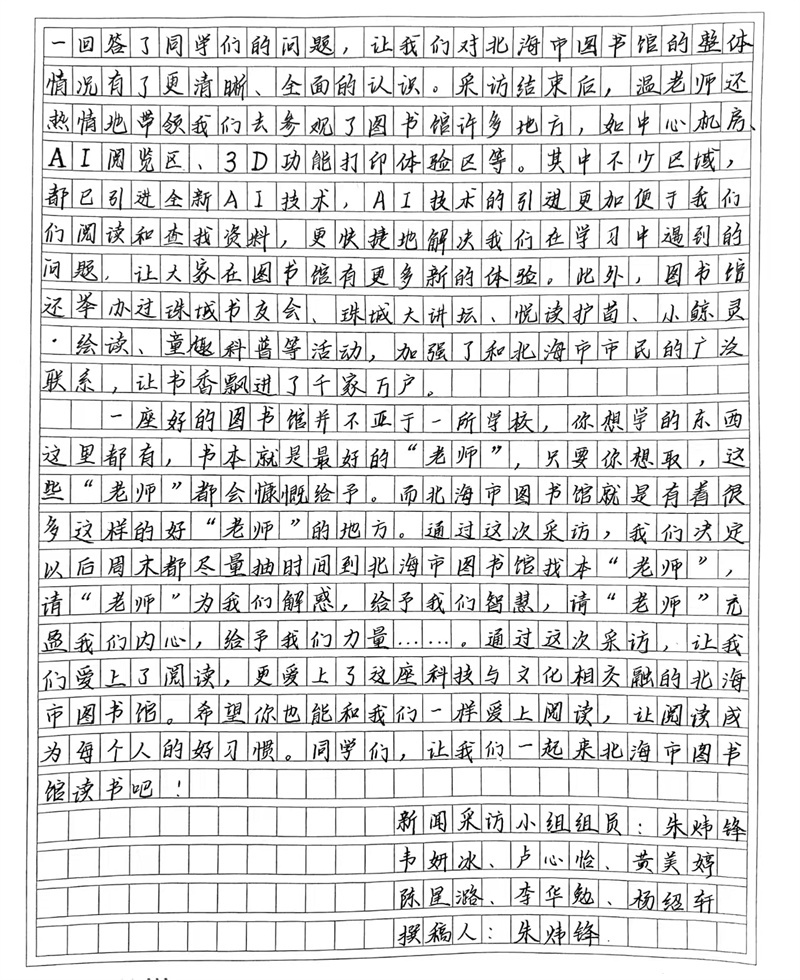 一回答了同学们的问题，让我们对北海市图书馆的整体
情况有了更清晰、全面的认识。采访结束后，温老师还
热情地带领我们去参观了图书馆许多地方，如中心机房、
AI阅览区、3D功能打印体验区等。其中不少区域，
都已引进全新AI技术，AI技术的引进更加便于我们
们阅读和查找资料，更快捷地解决我们在学习中遇到的
问题，让大家在图书馆有更多新的体验。此外，图书馆
还举办过珠城书友会、珠城大讲坛、悦读护苗、小鲸灵
·绘读、童趣科普等活动，加强了和北海市市民的广泛
联系，让书香飘进了千家万户。
一座好的图书馆并不亚于一所学校，你想学的东西
这里都有，书本就是最好的“老师”，只要你想取，这
些“老师”都会慷慨给予。而北海市图书馆就是有着很
多这样的好“老师”的地方。通过这次采访，我们决定
以后周末都尽量抽时间到北海市图书馆找本“老师”，
请“老师”为我们解惑，给予我们智慧，请“老师”充
盈我们内心，给予我们力量……。通过这次采访，让我
们爱上了阅读，更爱上了这座科技与文化相交融的北海
市图书馆。希望你也能和我们一样爱上阅读，让阅读成
为每个人的好习惯。同学们，让我们一起来北海市图书
馆读书吧！
新闻采访小组组员：朱炜锋
韦妍冰、卢心怡、黄美婷
陈星潞、李华勉、杨绍轩
撰稿人：朱炜锋